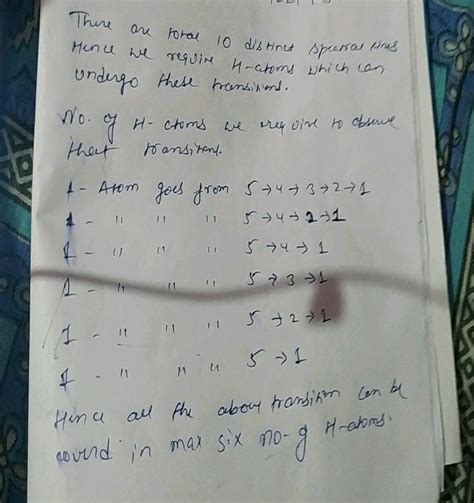 There are total 10 distinct spectral lines
Hence we require H-atoms which can
undergo these transitions.
No. of H- atoms we require to observe
that transitions.
1 - Atom goes from 5→4→3→2→1
1 - " " " 5→4→2→1
1 - " " " 5→4→1
1 - " " " 5→3→1
1 - " " " 5→2→1
1 - " " " 5→1
Hence all the above transition can be
coverd in max. six no-of H-atoms.